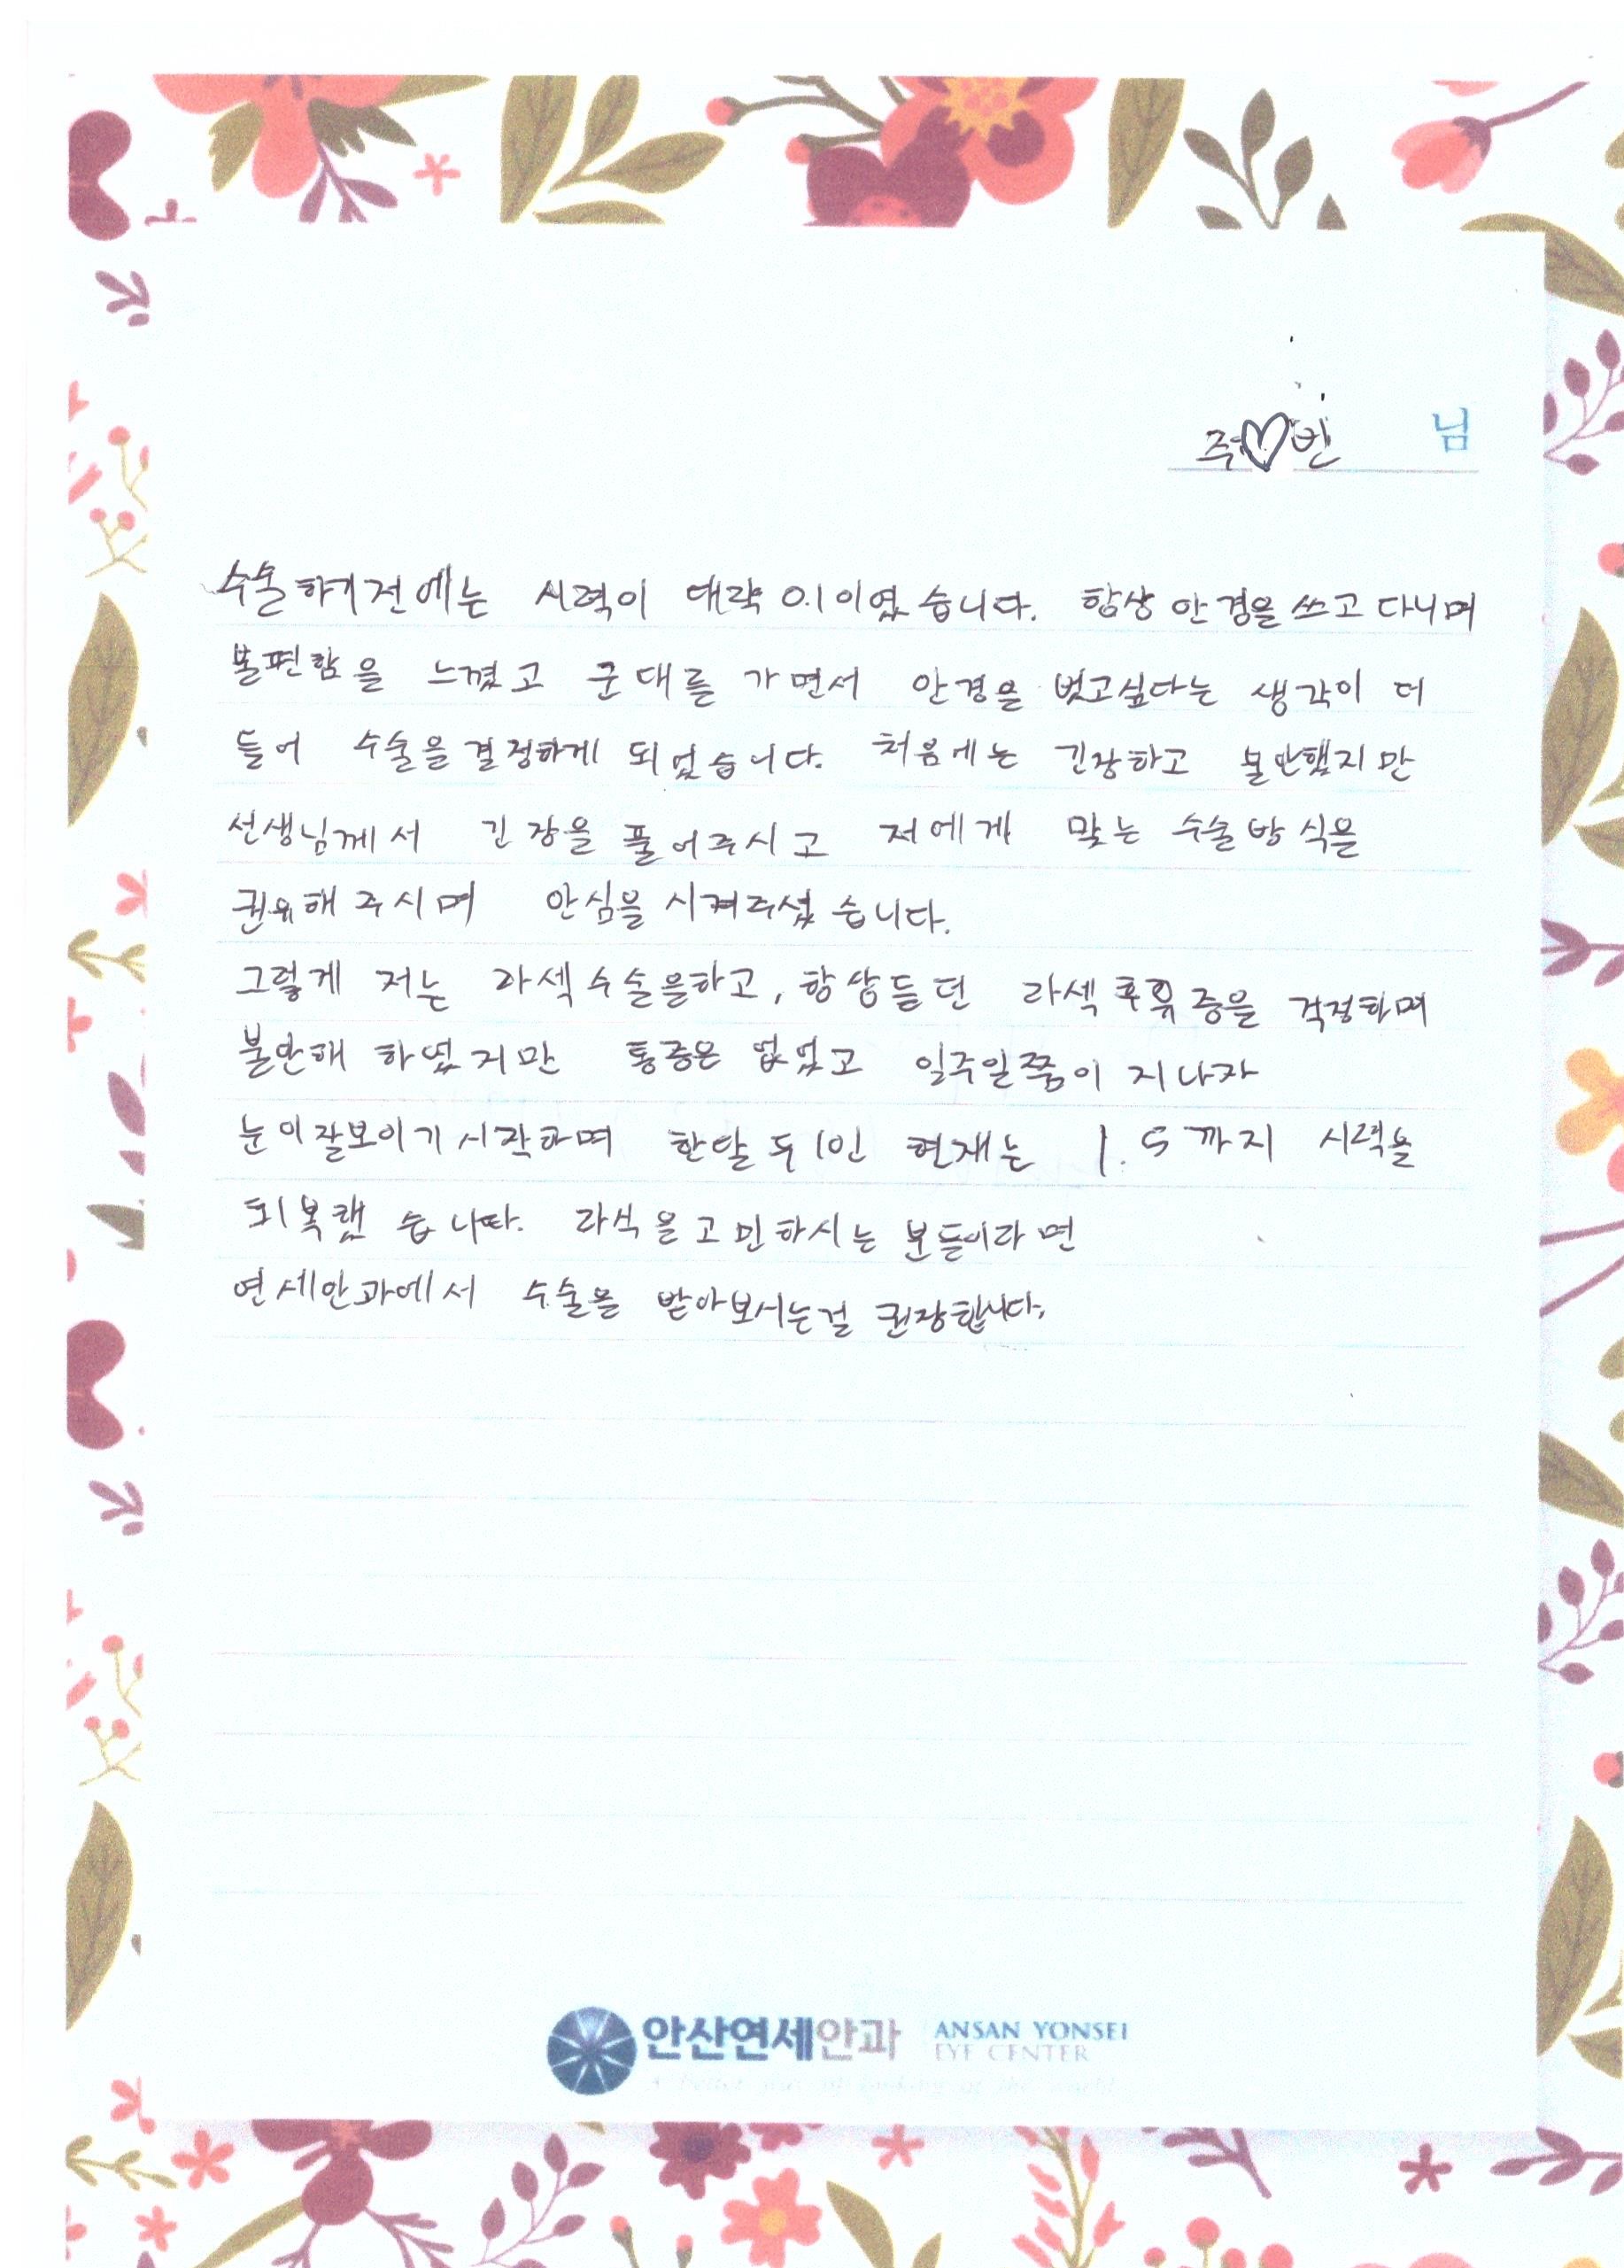 주♡빈 님
수술하기전에는 시력이 대략 0.1이였습니다. 항상 안경을 쓰고 다니며
불편함을 느꼈고 군대를 가면서 안경을 벗고싶다는 생각이 더
들어 수술을 결정하게 되었습니다. 처음에는 긴장하고 불안했지만
선생님께서 긴장을 풀어주시고 저에게 맞는 수술방식을
권유해주시며 안심을 시켜주셨습니다.
그렇게 저는 라섹수술을하고, 항상듣던 라섹후유증을 걱정하며
불안해 하였지만 통증은 없었고 일주일쯤이 지나자
눈이잘보이기시작하며 한달 뒤인 현재는 1.5까지 시력을
회복했습니다. 라식을고민하시는 분들이라면
연세안과에서 수술을 받아보시는걸 권장합니다.
안산연세안과 ANSAN YONSEI
EYE CENTER